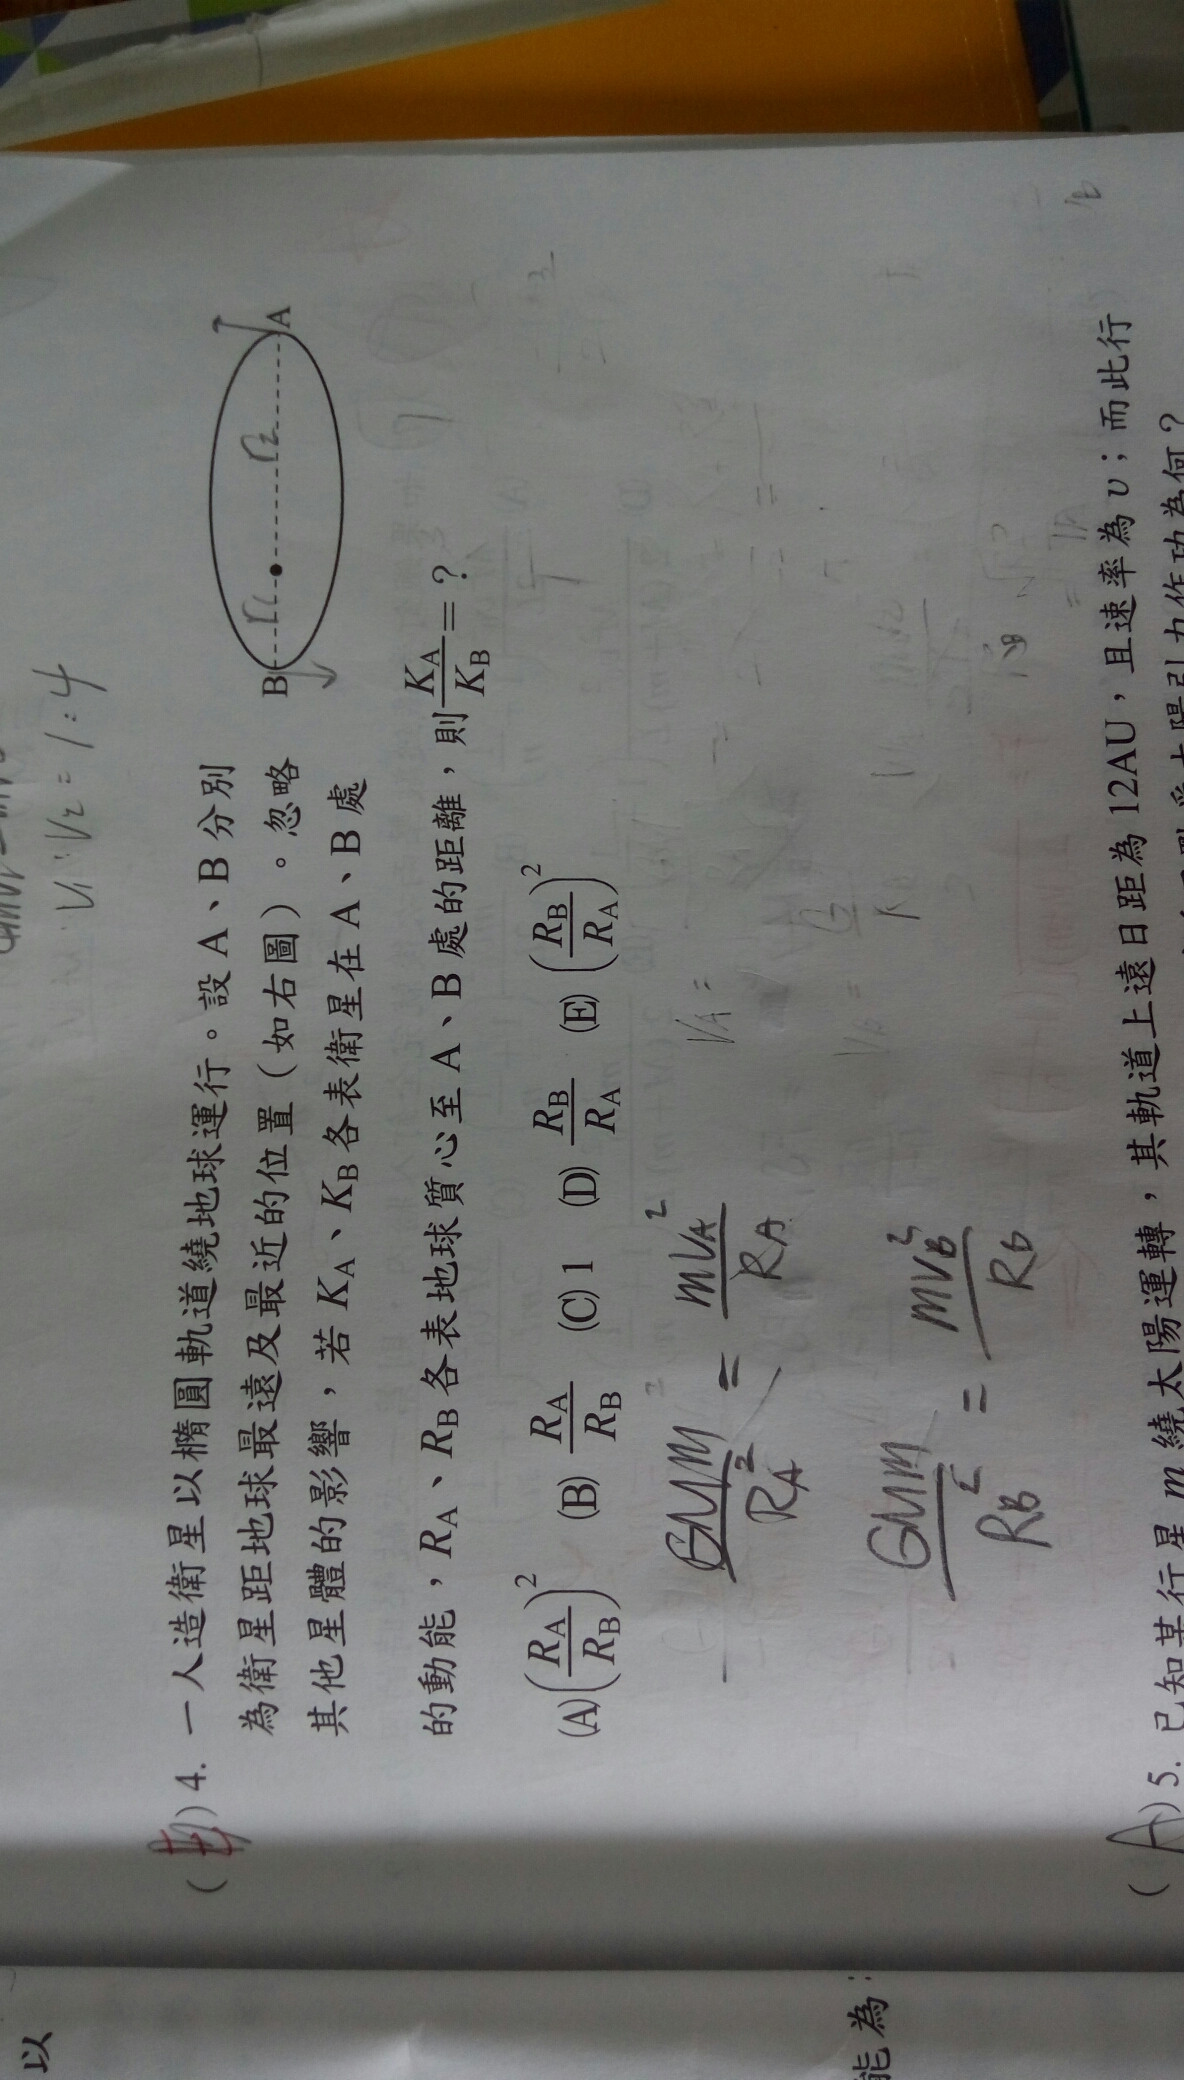 V₁:V₂ = 1:4
( E ) 4. 一人造衛星以橢圓軌道繞地球運行。設 A、B 分別
為衛星距地球最遠及最近的位置(如右圖)。忽略
其他星體的影響,若 K_A、K_B 各表衛星在 A、B 處
的動能,R_A、R_B 各表地球質心至 A、B 處的距離,則 K_A/K_B = ?
B r₁ r₂ A
(A) (R_A/R_B)² (B) R_A/R_B (C) 1 (D) R_B/R_A (E) (R_B/R_A)²
GMm/R_A² = mV_A²/R_A
V_A =
GMm/R_B² = mV_B²/R_B
( A ) 5. 已知某行星 m 繞太陽運轉,其軌道上遠日距為 12AU,且速率為 υ;而此行
太陽引力作功為何?
以
能為: